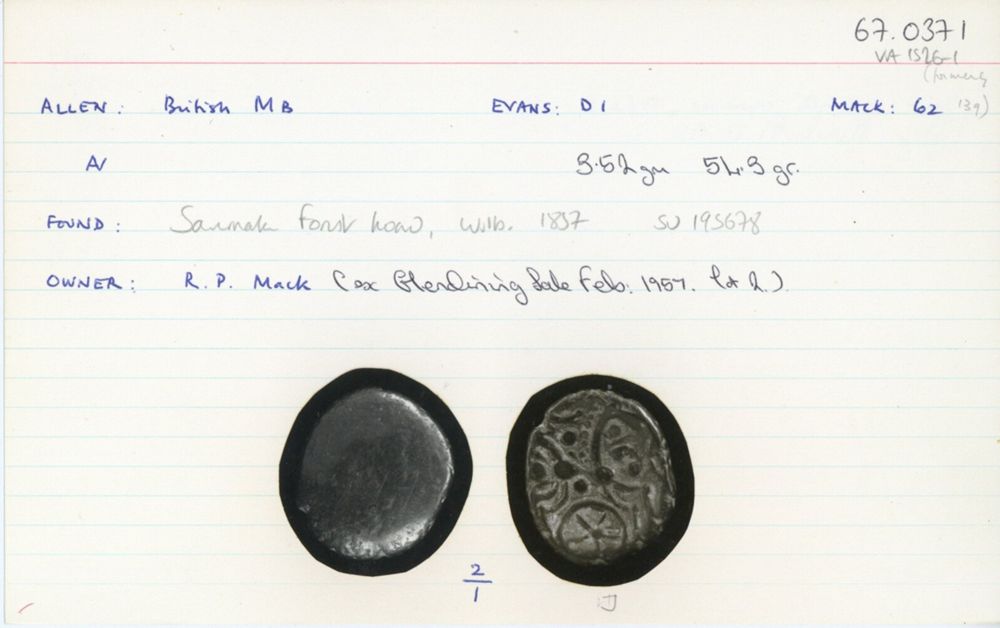 67.0371
VA 1526-1
(formerly
139)
ALLEN: British MB EVANS: D1 MACK: 62
AV 3.52gm 54.3 gr.
FOUND: Savernake Forest hoard, Wilts. 1857 SU 195678
OWNER: R. P. Mack (ex Glendining Sale Feb: 1957. lot 2.)
2
1